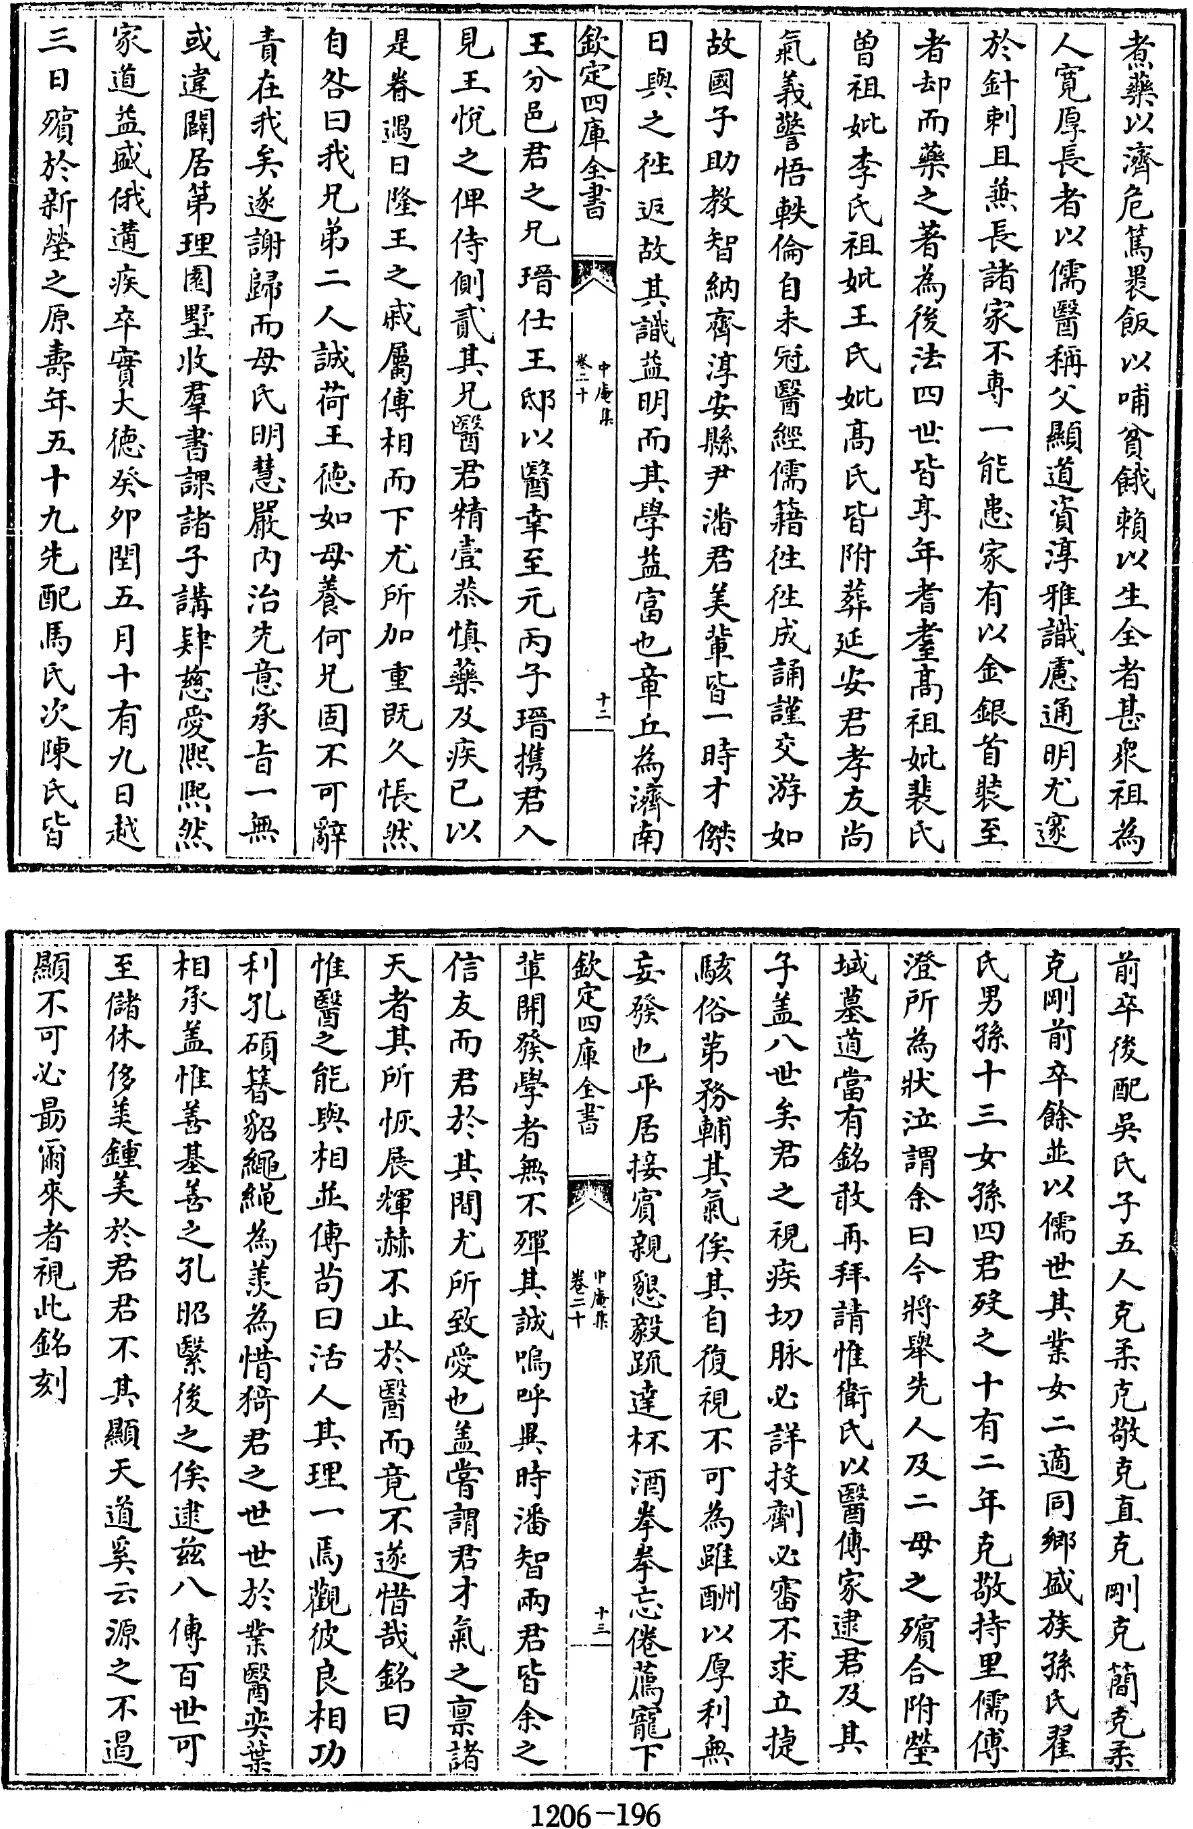 煮藥以濟危篤褁飯以哺貧餓賴以生全者甚衆祖為
人寛厚長者以儒醫稱父顯道資淳雅識慮通明尤邃
於針刺且兼長諸家不專一能患家有以金銀首裝至
者却而藥之著為後法四世皆享年耆耋高祖妣裴氏
曽祖妣李氏祖妣王氏妣髙氏皆附葬延安君孝友尚
氣義警悟軼倫自未冠醫經儒籍徃徃成誦謹交游如
故國子助教智納齋淳安縣尹潘君美輩皆一時才傑
日與之徃返故其識益明而其學益富也章丘為濟南
欽定四庫全書
中庵集
卷二十
十二
王分邑君之兄瑨仕王邸以醫幸至元丙子瑨携君入
見王悅之俾侍側貳其兄醫君精壹恭慎藥及疾已以
是眷遇日隆王之戚屬傅相而下尤所加重既久悵然
自咎曰我兄弟二人誠荷王德如母養何兄固不可辭
責在我矣遂謝歸而母氏明慧嚴内治先意承旨一無
或違闢居第理園墅收羣書課諸子講肄慈愛熈熈然
家道益盛俄遘疾卒實大德癸卯閏五月十有九日越
三日殯於新塋之原壽年五十九先配馬氏次陳氏皆
前卒後配吳氏子五人克柔克敬克直克剛克簡克柔
克剛前卒餘並以儒世其業女二適同鄉盛族孫氏翟
氏男孫十三女孫四君歿之十有二年克敬持里儒傅
澄所為狀泣謂余曰今將舉先人及二母之殯合附塋
域墓道當有銘敢再拜請惟衛氏以醫傳家逮君及其
子盖八世矣君之視疾切脉必詳投劑必審不求立捷
駭俗第務輔其氣俟其自復視不可為雖酬以厚利無
妄發也平居接賓親懇毅疏達杯酒拳拳忘倦薦寵下
欽定四庫全書
中庵集
卷二十
十三
輩開發學者無不殫其誠嗚呼異時潘智兩君皆余之
信友而君於其間尤所致愛也盖嘗謂君才氣之禀諸
天者其所恢展輝赫不止於醫而竟不遂惜哉銘曰
惟醫之能與相並傳茍曰活人其理一焉觀彼良相功
利孔碩簪貂繩繩為羨為惜猗君之世世於業醫奕葉
相承盖惟善基善之孔昭繄後之俟逮兹八傳百世可
至儲休侈羙鍾美於君君不其顯天道奚云源之不遏
顯不可必朂爾來者視此銘刻
1206-196